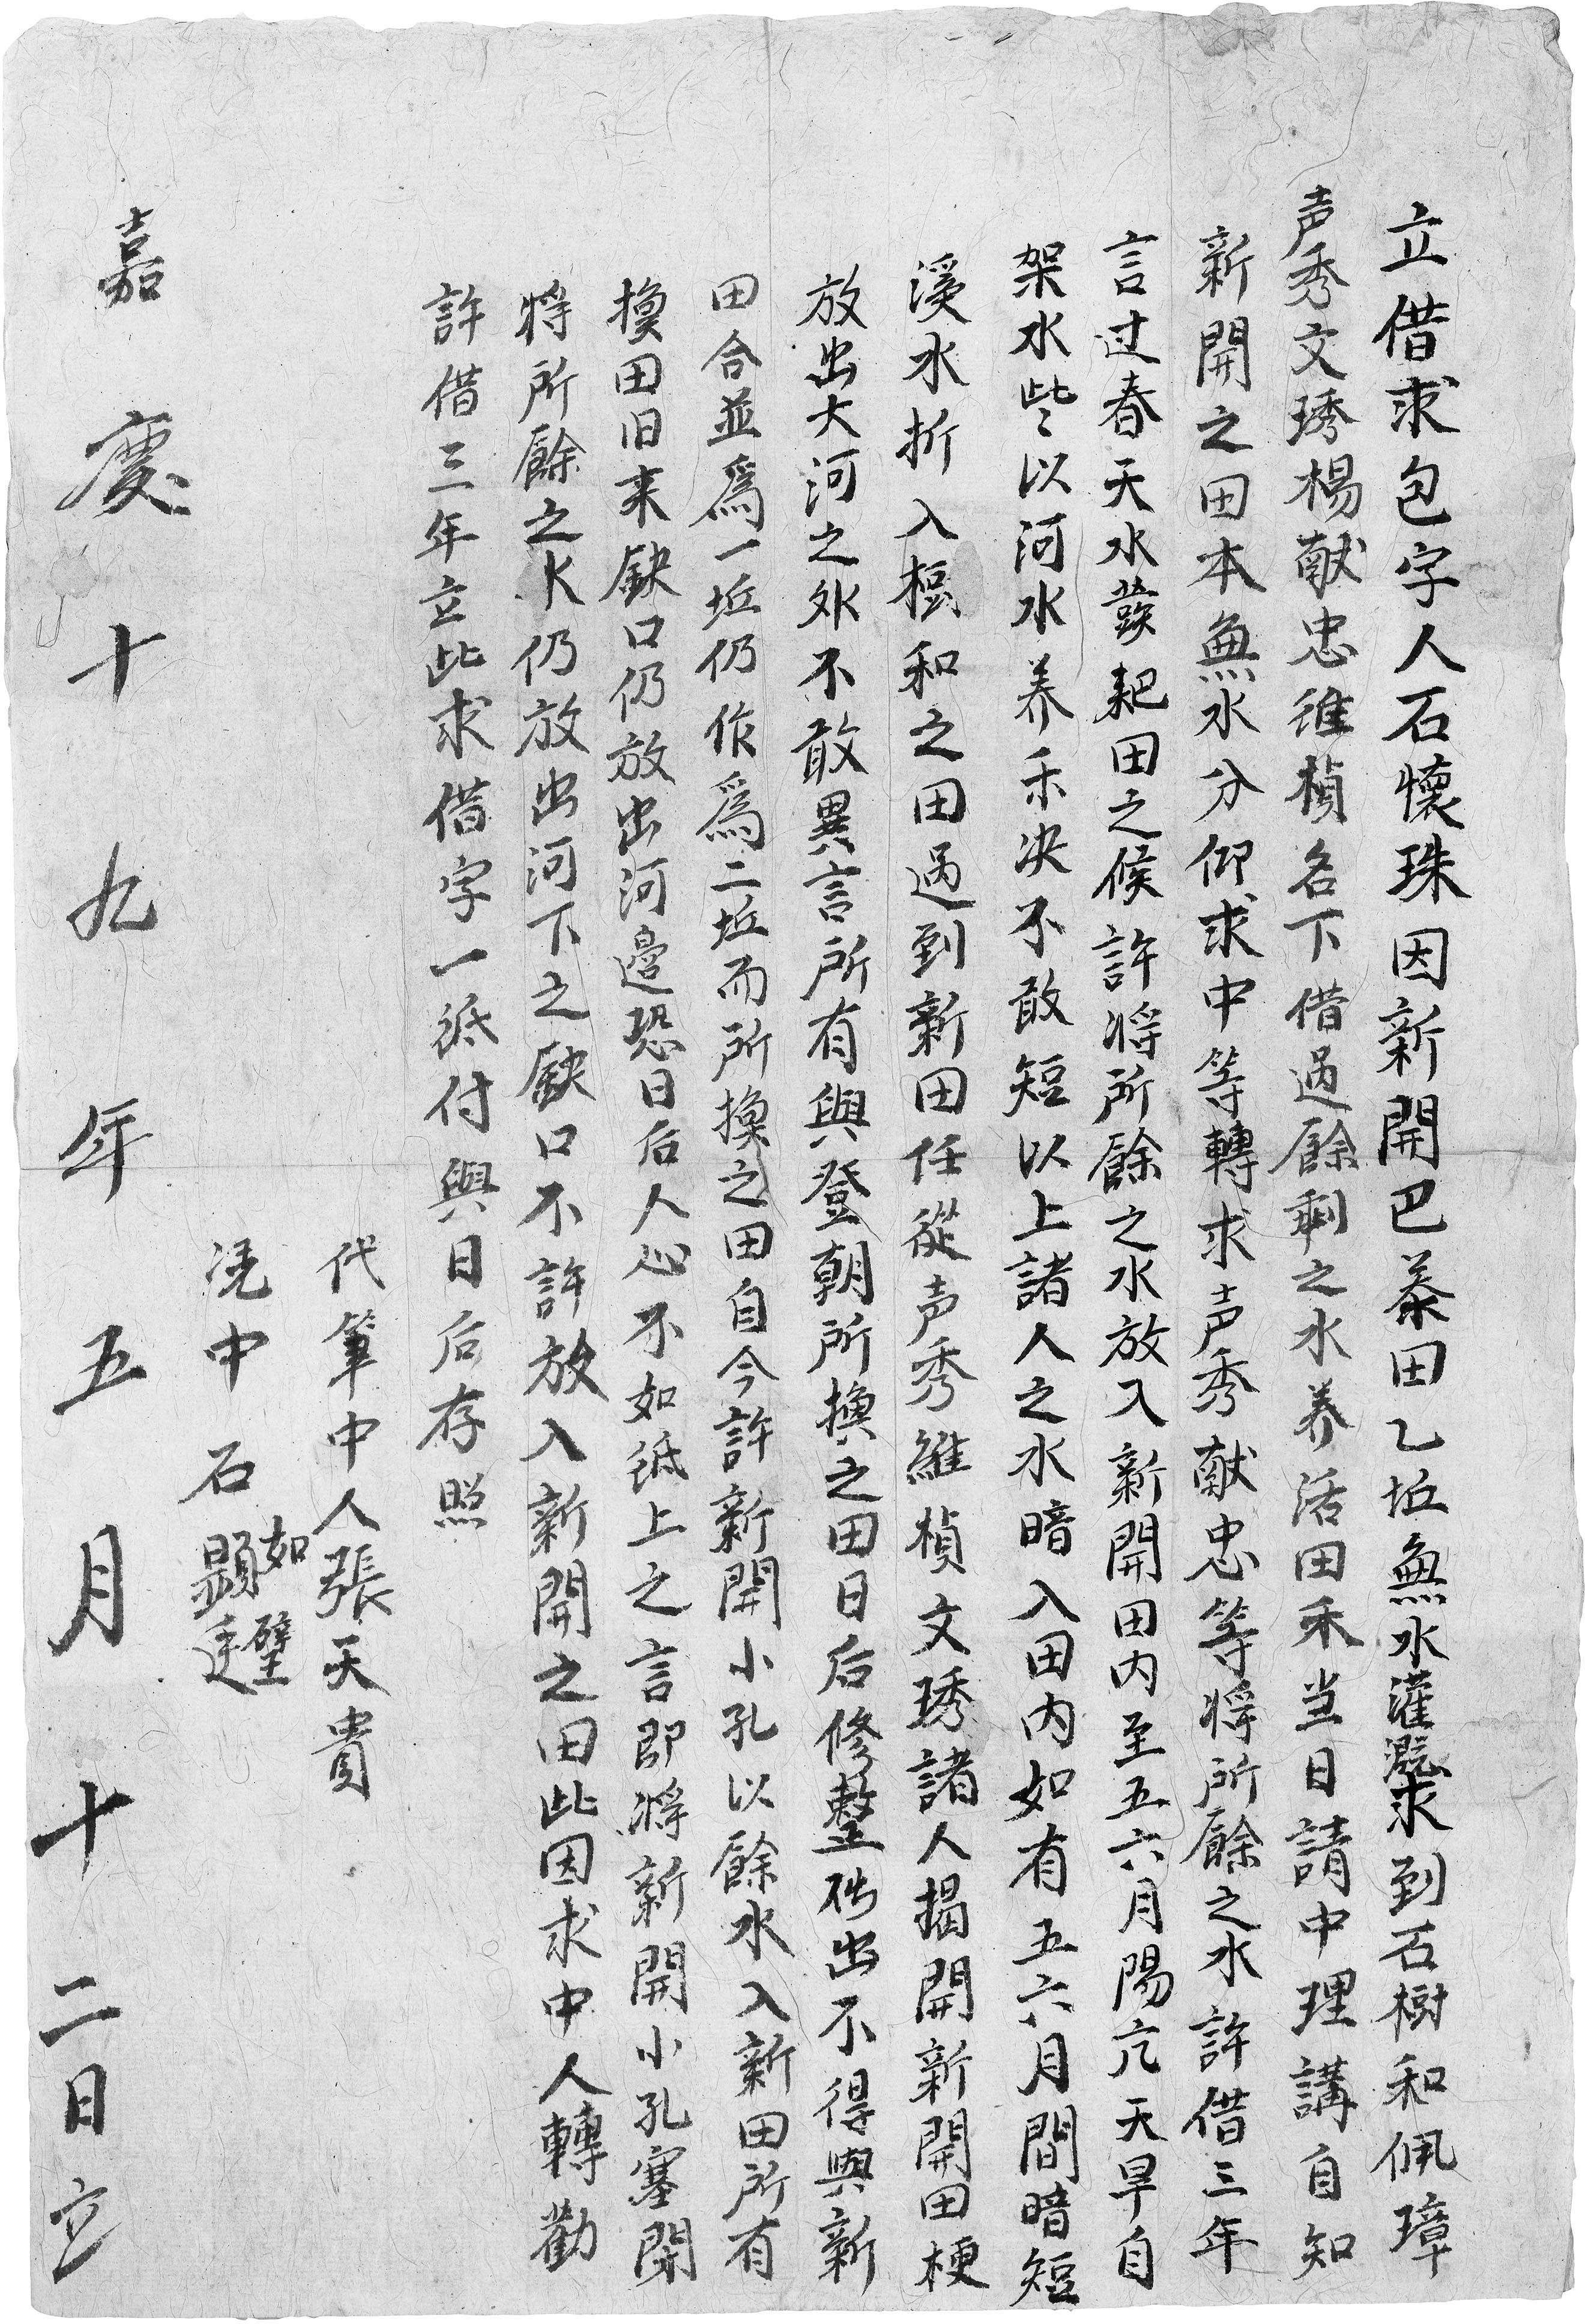 立借求包字人石懷珠因新開巴蔴田乙坵無水灌溉求到石樹和佩璋
声秀文琇楊献忠維楨名下借過餘剩之水养活田禾当日請中理講自知
新開之田本無水分仰求中等轉求声秀献忠等將所餘之水許借三年
言过春天水發耙田之候許將所餘之水放入新開田内至五六月陽亢天旱自
架水些以河水养禾决不敢短以上諸人之水暗入田内如有五六月間暗短
溪水折入樹和之田過到新田任從声秀維楨文琇諸人揭開新開田梗
放出大河之外不敢異言所有與登朝所換之田日后修整砌出不得與新
田合並爲一坵仍作爲二坵而所換之田自今許新開小孔以餘水入新田所有
換田旧来缺口仍放出河邊恐日后人心不如纸上之言即將新開小孔塞閉
將所餘之水仍放出河下之缺口不許放入新開之田此因求中人轉勸
許借三年立此求借字一纸付與日后存照
代筆中人張天貴
凴中石如璧顕廷
嘉慶十九年五月十二日立